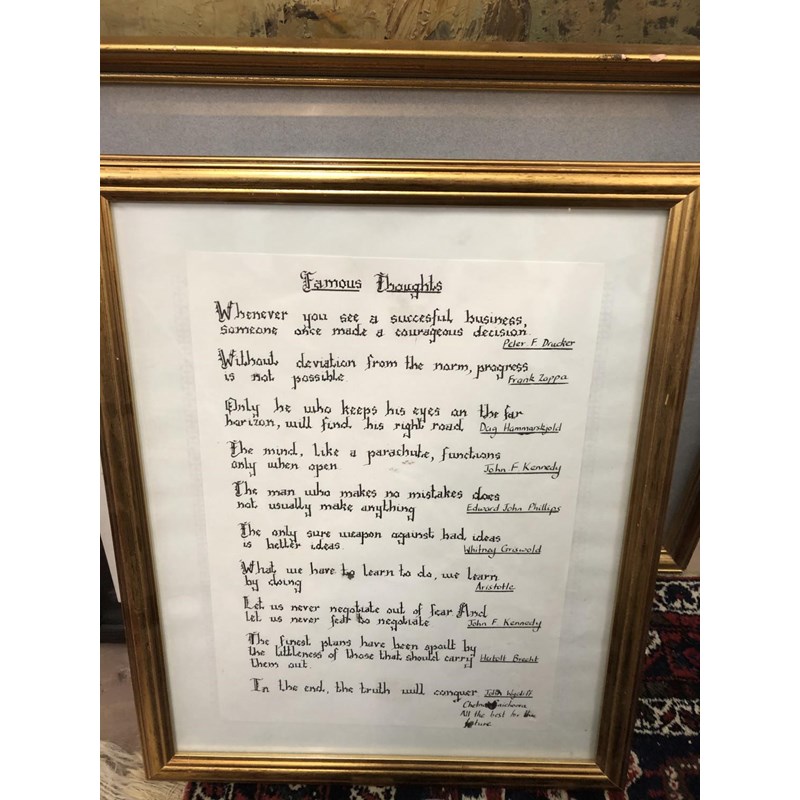 Famous Thoughts
Whenever you see a succesful business,
someone once made a courageous decision
Peter F. Drucker
Without deviation from the norm, progress
is not possible
Frank Zappa
Only he who keeps his eyes on the far
horizon, will find his right road
Dag Hammarskjold
The mind, like a parachute, functions
only when open
John F. Kennedy
The man who makes no mistakes does
not usually make anything
Edward John Phillips
The only sure weapon against bad ideas
is better ideas
Whitney Griswold
What we have to learn to do, we learn
by doing
Aristotle
Let us never negotiate out of fear And
let us never fear to negotiate
John F. Kennedy
The finest plans have been spoilt by
the littleness of those that should carry
them out.
Brecht
In the end, the truth will conquer
John Wycliff
All the best for the
future